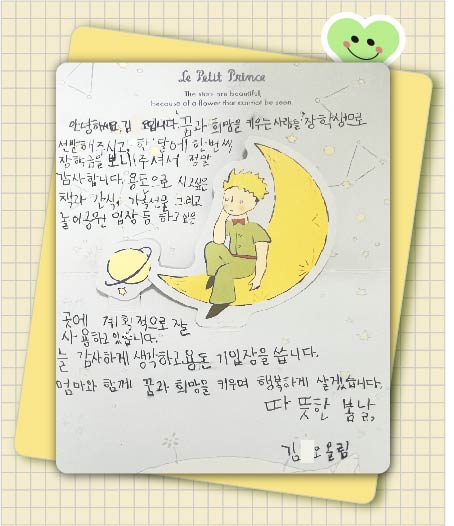 Le Petit Prince
The stars are beautiful,
because of a flower that cannot be seen.
안녕하세요. 김 입니다. 꿈과 희망을 키우는 사람들 장학생으로
선발해주시고, 한 달에 한번씩
장학금을 보내주셔서 정말
감사합니다. 용돈으로 사고싶은
책과 간식, 가족선물 그리고
놀이공원 입장 등 하고싶은
곳에 계획적으로 잘
사용하고 있습니다.
늘 감사하게 생각하고 용돈 기입장을 씁니다.
엄마와 함께 꿈과 희망을 키우며 행복하게 살겠습니다.
따뜻한 봄날,
김 오 올림